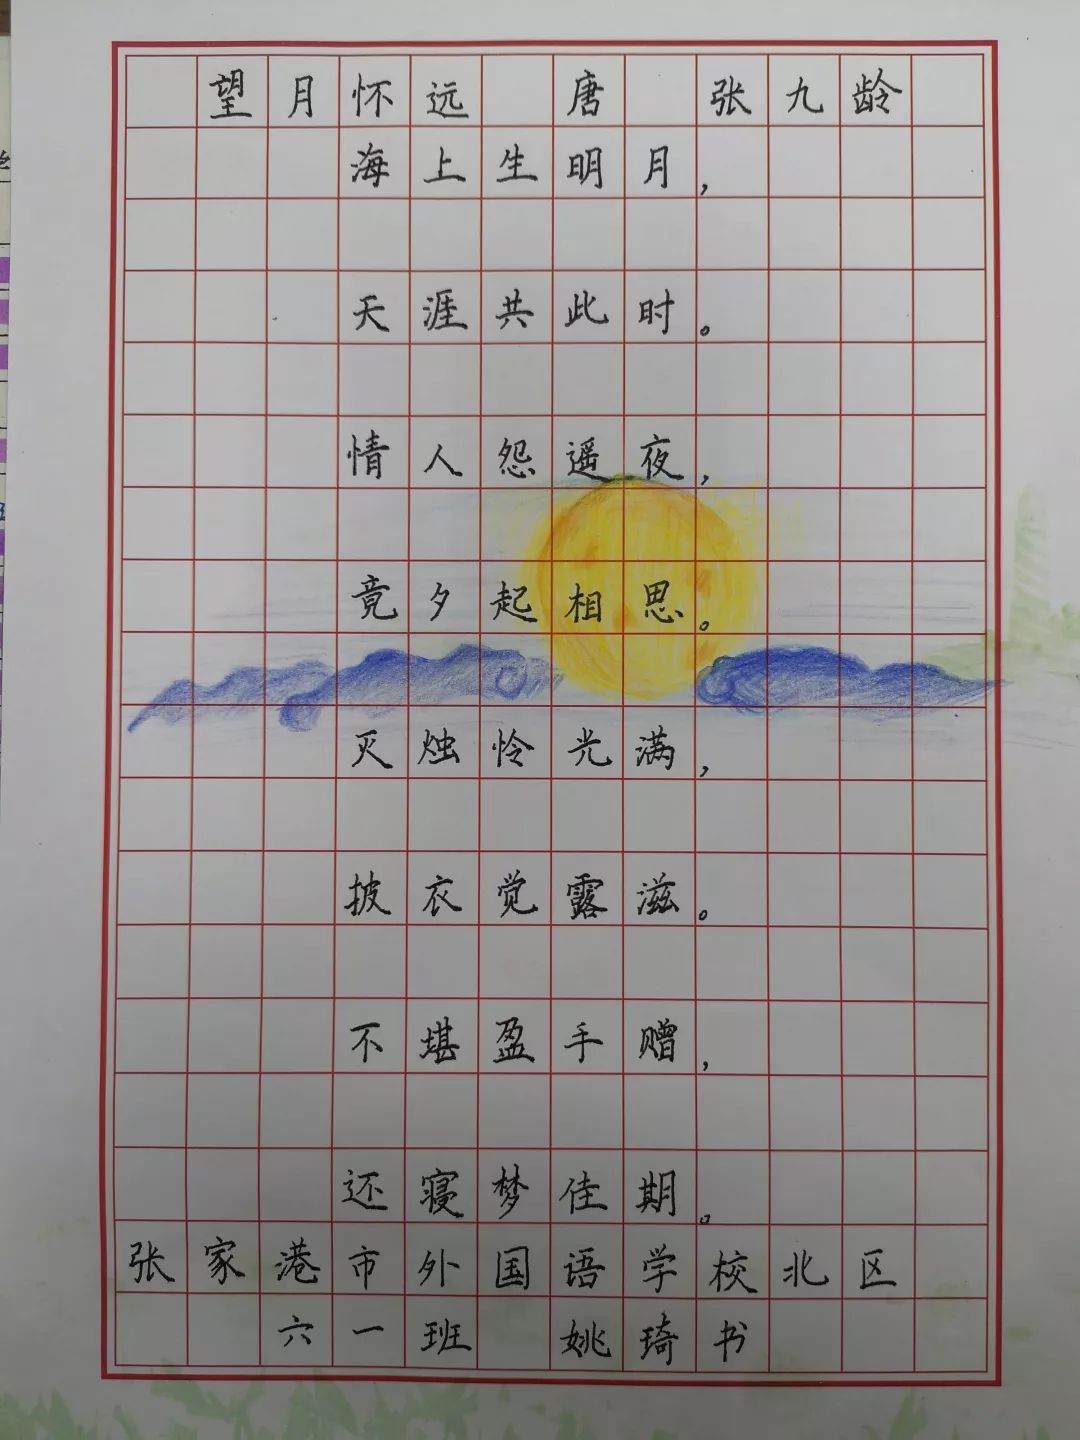 望月怀远 唐 张九龄
海上生明月，
天涯共此时。
情人怨遥夜，
竟夕起相思。
灭烛怜光满，
披衣觉露滋。
不堪盈手赠，
还寝梦佳期。
张家港市外国语学校北区
六一班 姚琦书